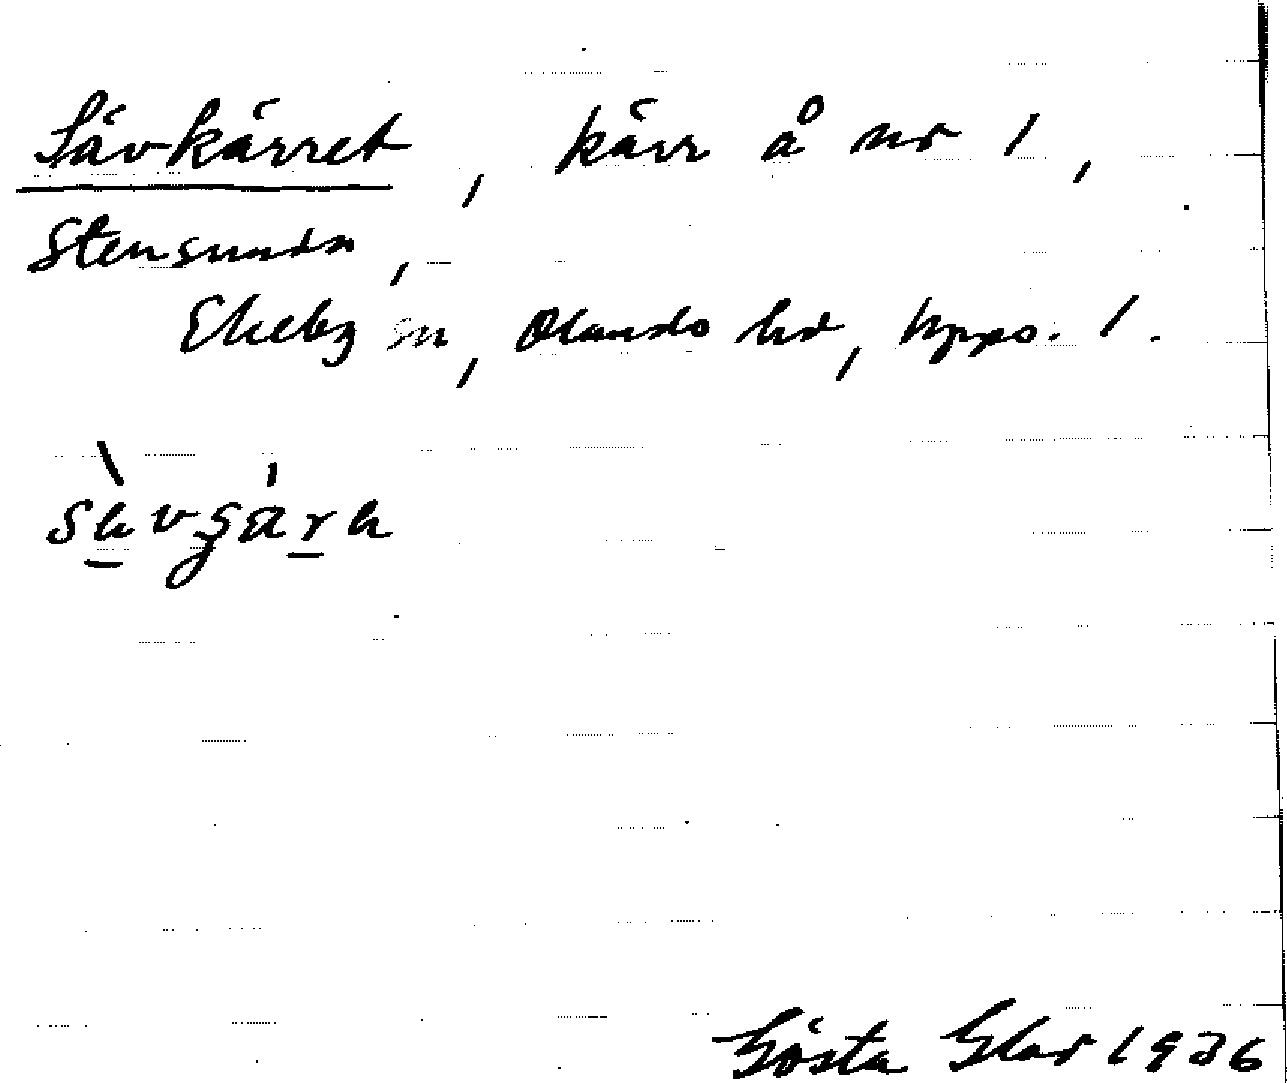 Sävkärret, kärr å nr 1,
Stensunda,
Ekeby sn, Olands hd, Upps. l.
sävgära
Gösta Elar 1936